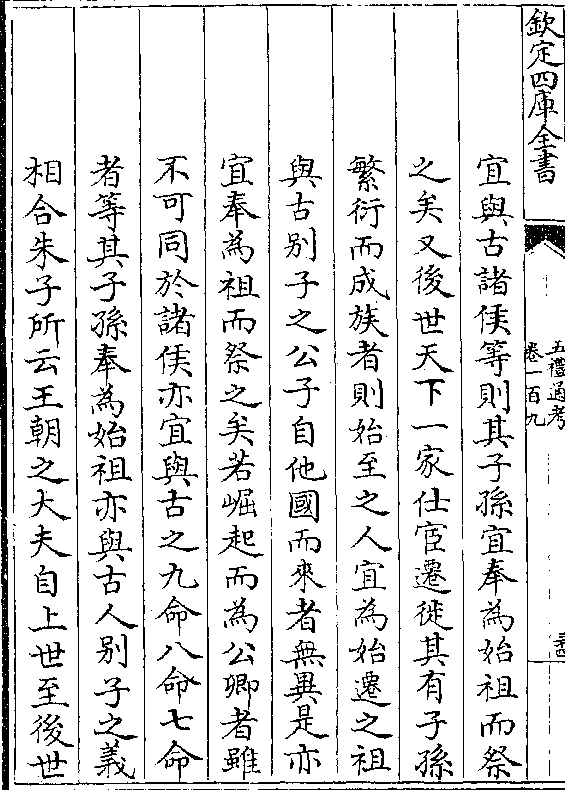 欽定四庫全書
五禮通考
卷一百九
宜與古諸侯等則其子孫宜奉為始祖而祭
之矣又後世天下一家仕宦遷徙其有子孫
繁衍而成族者則始至之人宜為始遷之祖
與古别子之公子自他國而來者無異是亦
宜奉為祖而祭之矣若崛起而為公卿者雖
不可同於諸侯亦宜與古之九命八命七命
者等其子孫奉為始祖亦與古人别子之義
相合朱子所云王朝之大夫自上世至後世